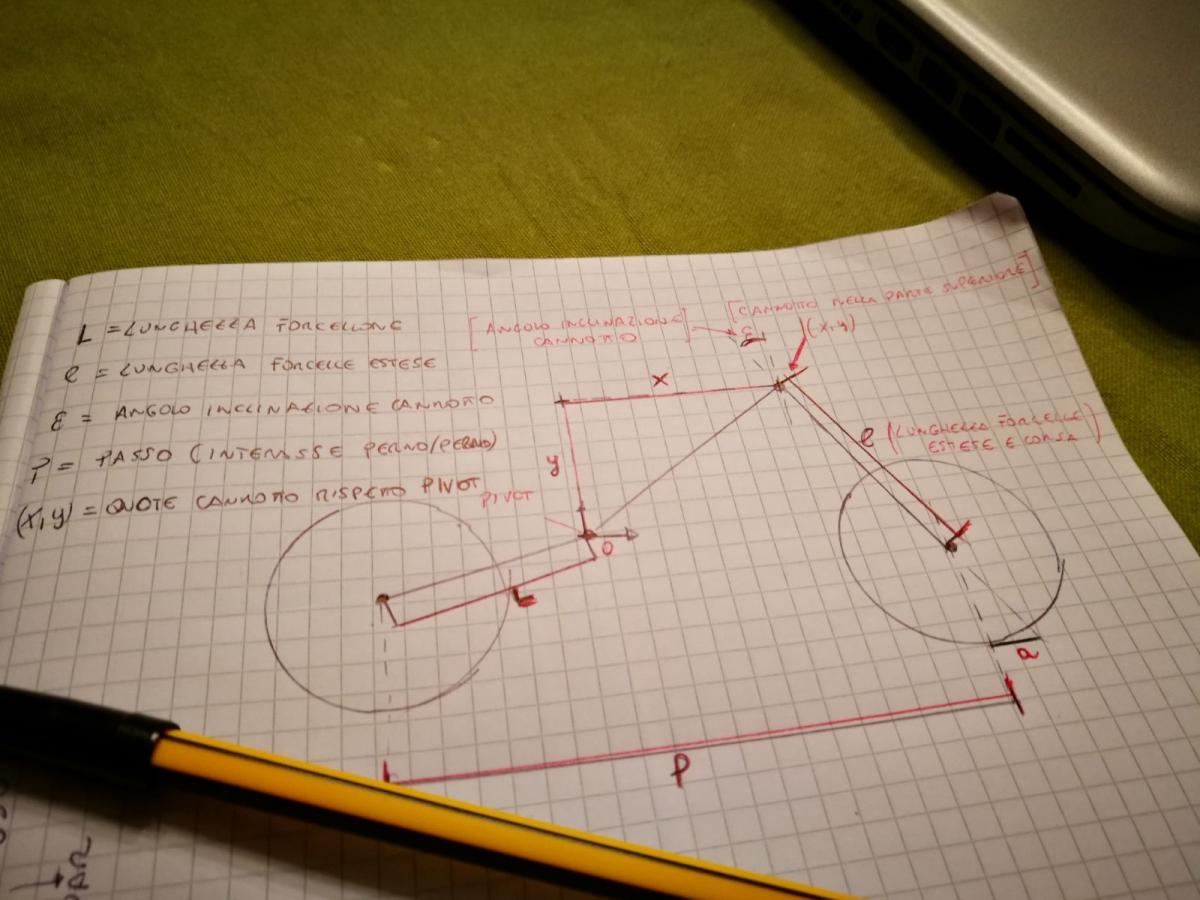 L = LUNGHEZZA FORCELLONE
e = LUNGHEZZA FORCELLE ESTESE
ε = ANGOLO INCLINAZIONE CANNOTTO
P = PASSO (INTERASSE PERNO/PERNO)
(x,y) = QUOTE CANNOTTO RISPETTO PIVOT
[ANGOLO INCLINAZIONE
CANNOTTO]
ε
[CANNOTTO NELLA PARTE SUPERIORE]
(x,y)
x
y
e (LUNGHEZZA FORCELLE
ESTESE E CORSA)
PIVOT
O
L
a
P